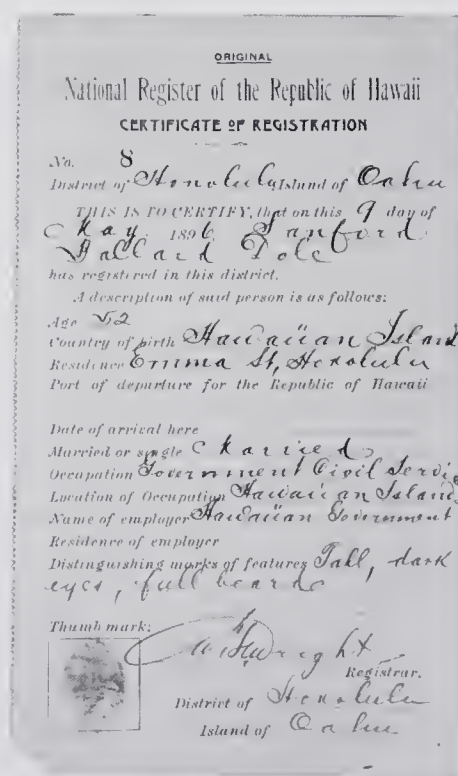 ORIGINAL
National Register of the Republic of Hawaii
CERTIFICATE OF REGISTRATION
No. 8
District of Honolulu Island of Oahu
THIS IS TO CERTIFY, that on this 9 day of
May 1896 Sanford
Ballard Dole
has registered in this district.
A description of said person is as follows:
Age 52
Country of birth Hawaiian Island
Residence Emma St, Honolulu
Port of departure for the Republic of Hawaii
Date of arrival here
Married or single Married
Occupation Government Civil Servic
Location of Occupation Hawaiian Island
Name of employer Hawaiian Government
Residence of employer
Distinguishing marks of features Tall, dark
eyes, full beard
Thumb mark:
Wright
Registrar.
District of Honolulu
Island of Oahu